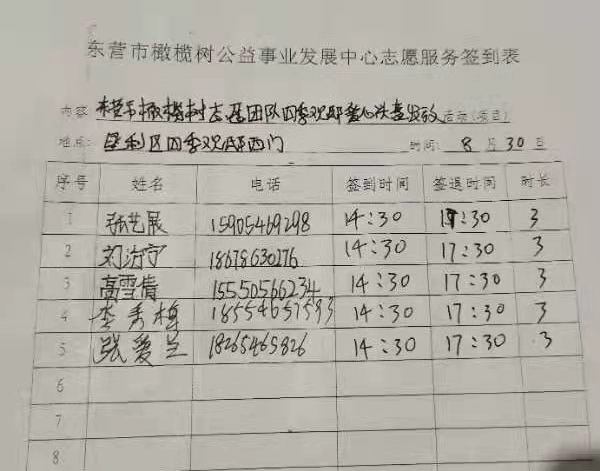 东营市橄榄树公益事业发展中心志愿服务签到表
内容 东营市橄榄树志愿团队四季观邸爱心扶Signature发放 活动(项目)
地点: 垦利区四季观邸西门 时间: 8 月 30 日
序号 姓名 电话 签到时间 签退时间 时长
1 张艺展 15905469298 14:30 17:30 3
2 刘治宁 18678630276 14:30 17:30 3
3 高雪倩 15550566234 14:30 17:30 3
4 李秀梅 18554657593 14:30 17:30 3
5 张爱兰 18265465826 14:30 17:30 3
6
7
8